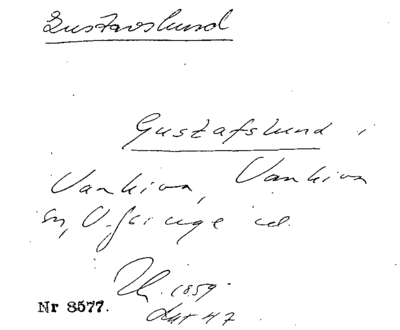 Gustavslund
Gustafslund i
Vankiva, Vankiva
sn, V. Göinge hd.
1859
Nr 8577.